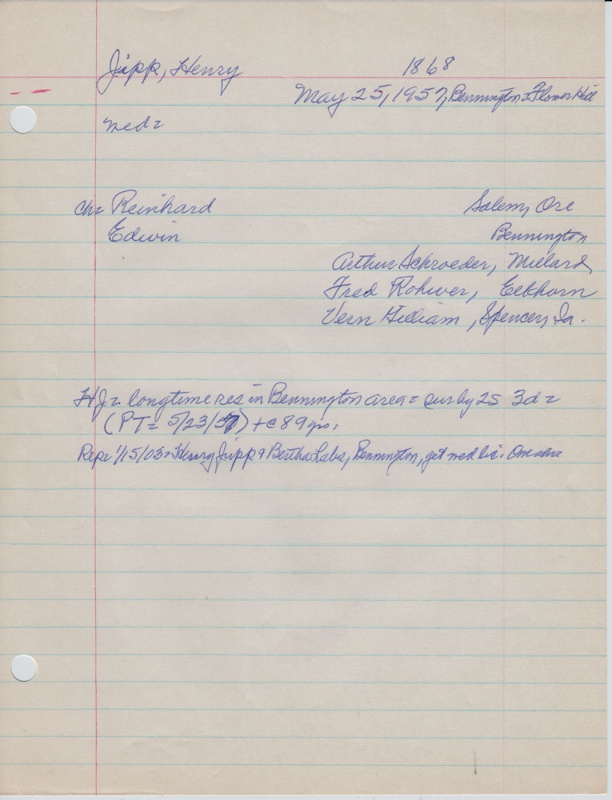 Jipp, Henry 1868
May 25, 1957, Bennington = Flower Hill
wed =
ch = Reinhard Salem, Ore
Edwin Bennington
Arthur Schroeder, Millard
Fred Rohwer, Elkhorn
Vern Gilliam, Spencer, Ia.
HJ = longtime res in Bennington area = sur by 2S 3d =
(PT = 5/23/57) + @ 89 yrs.
Rep = 1/15/03 = Henry Jipp & Bertha Labs, Bennington, get wed lic. Omaha